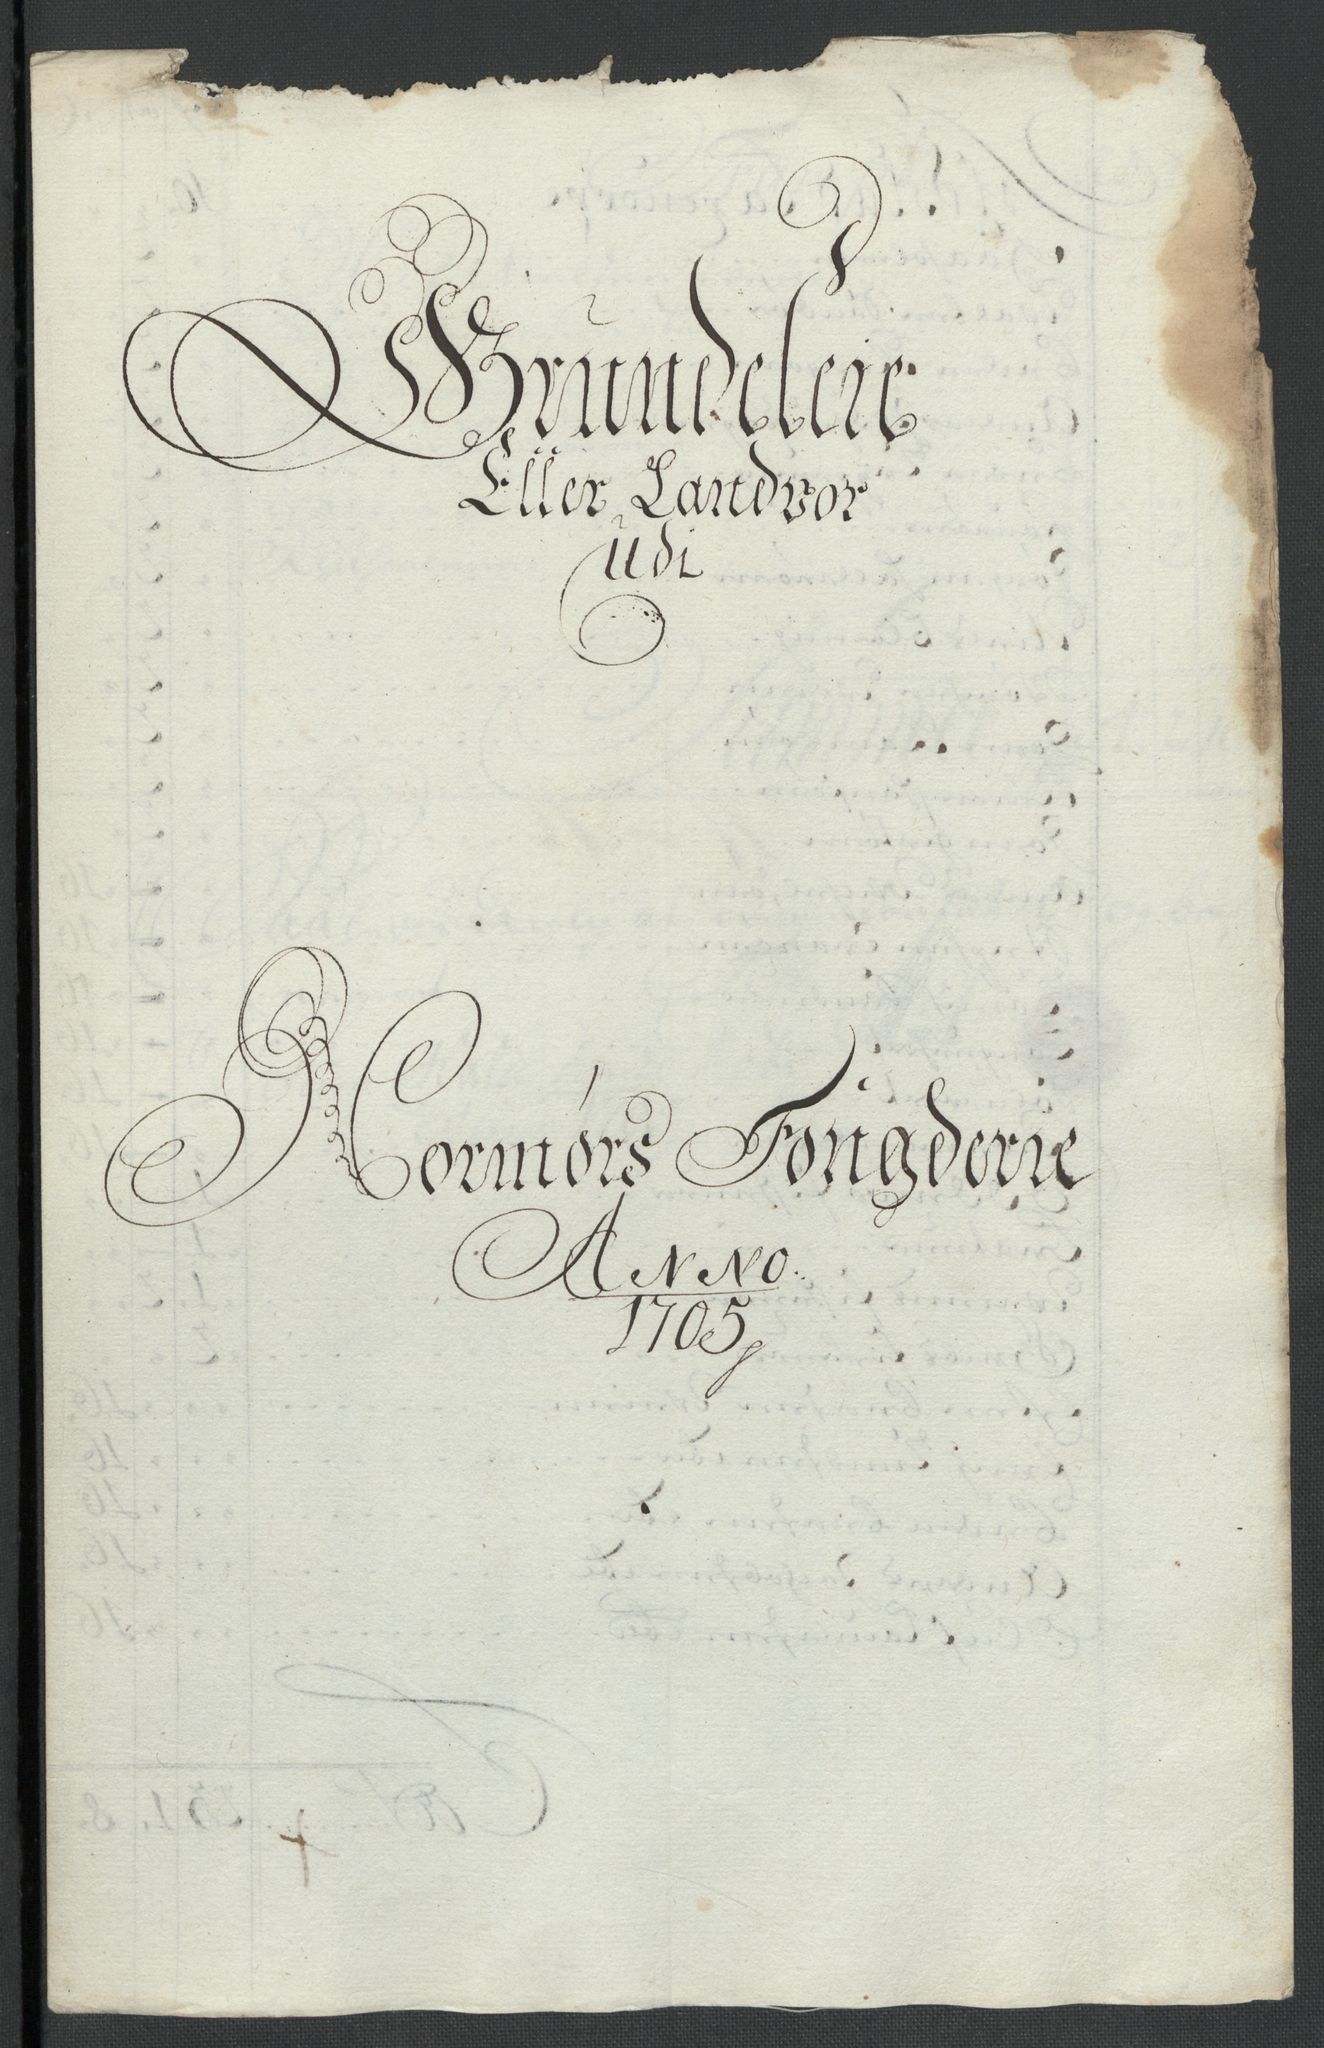 Grundeleie
Eller Landvor
Udi
Normørs Fougderie
ANNO.
1705